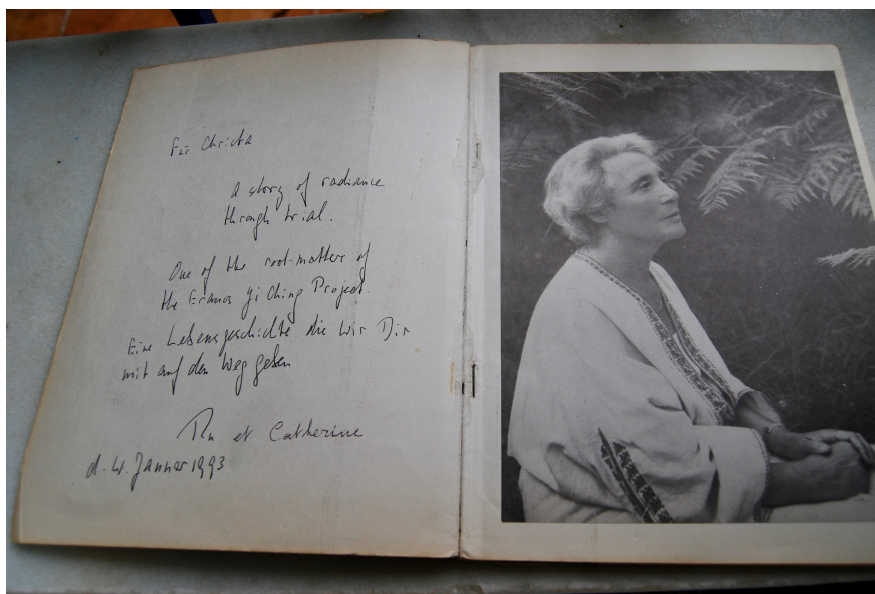 Für Christa
A story of radiance
through trial.
One of the root-matters of
the Eranos Yi Ching Project.
Eine Lebensgeschichte die wir Dir
mit auf den Weg geben
et Catherine
d. 4. Janner 1993